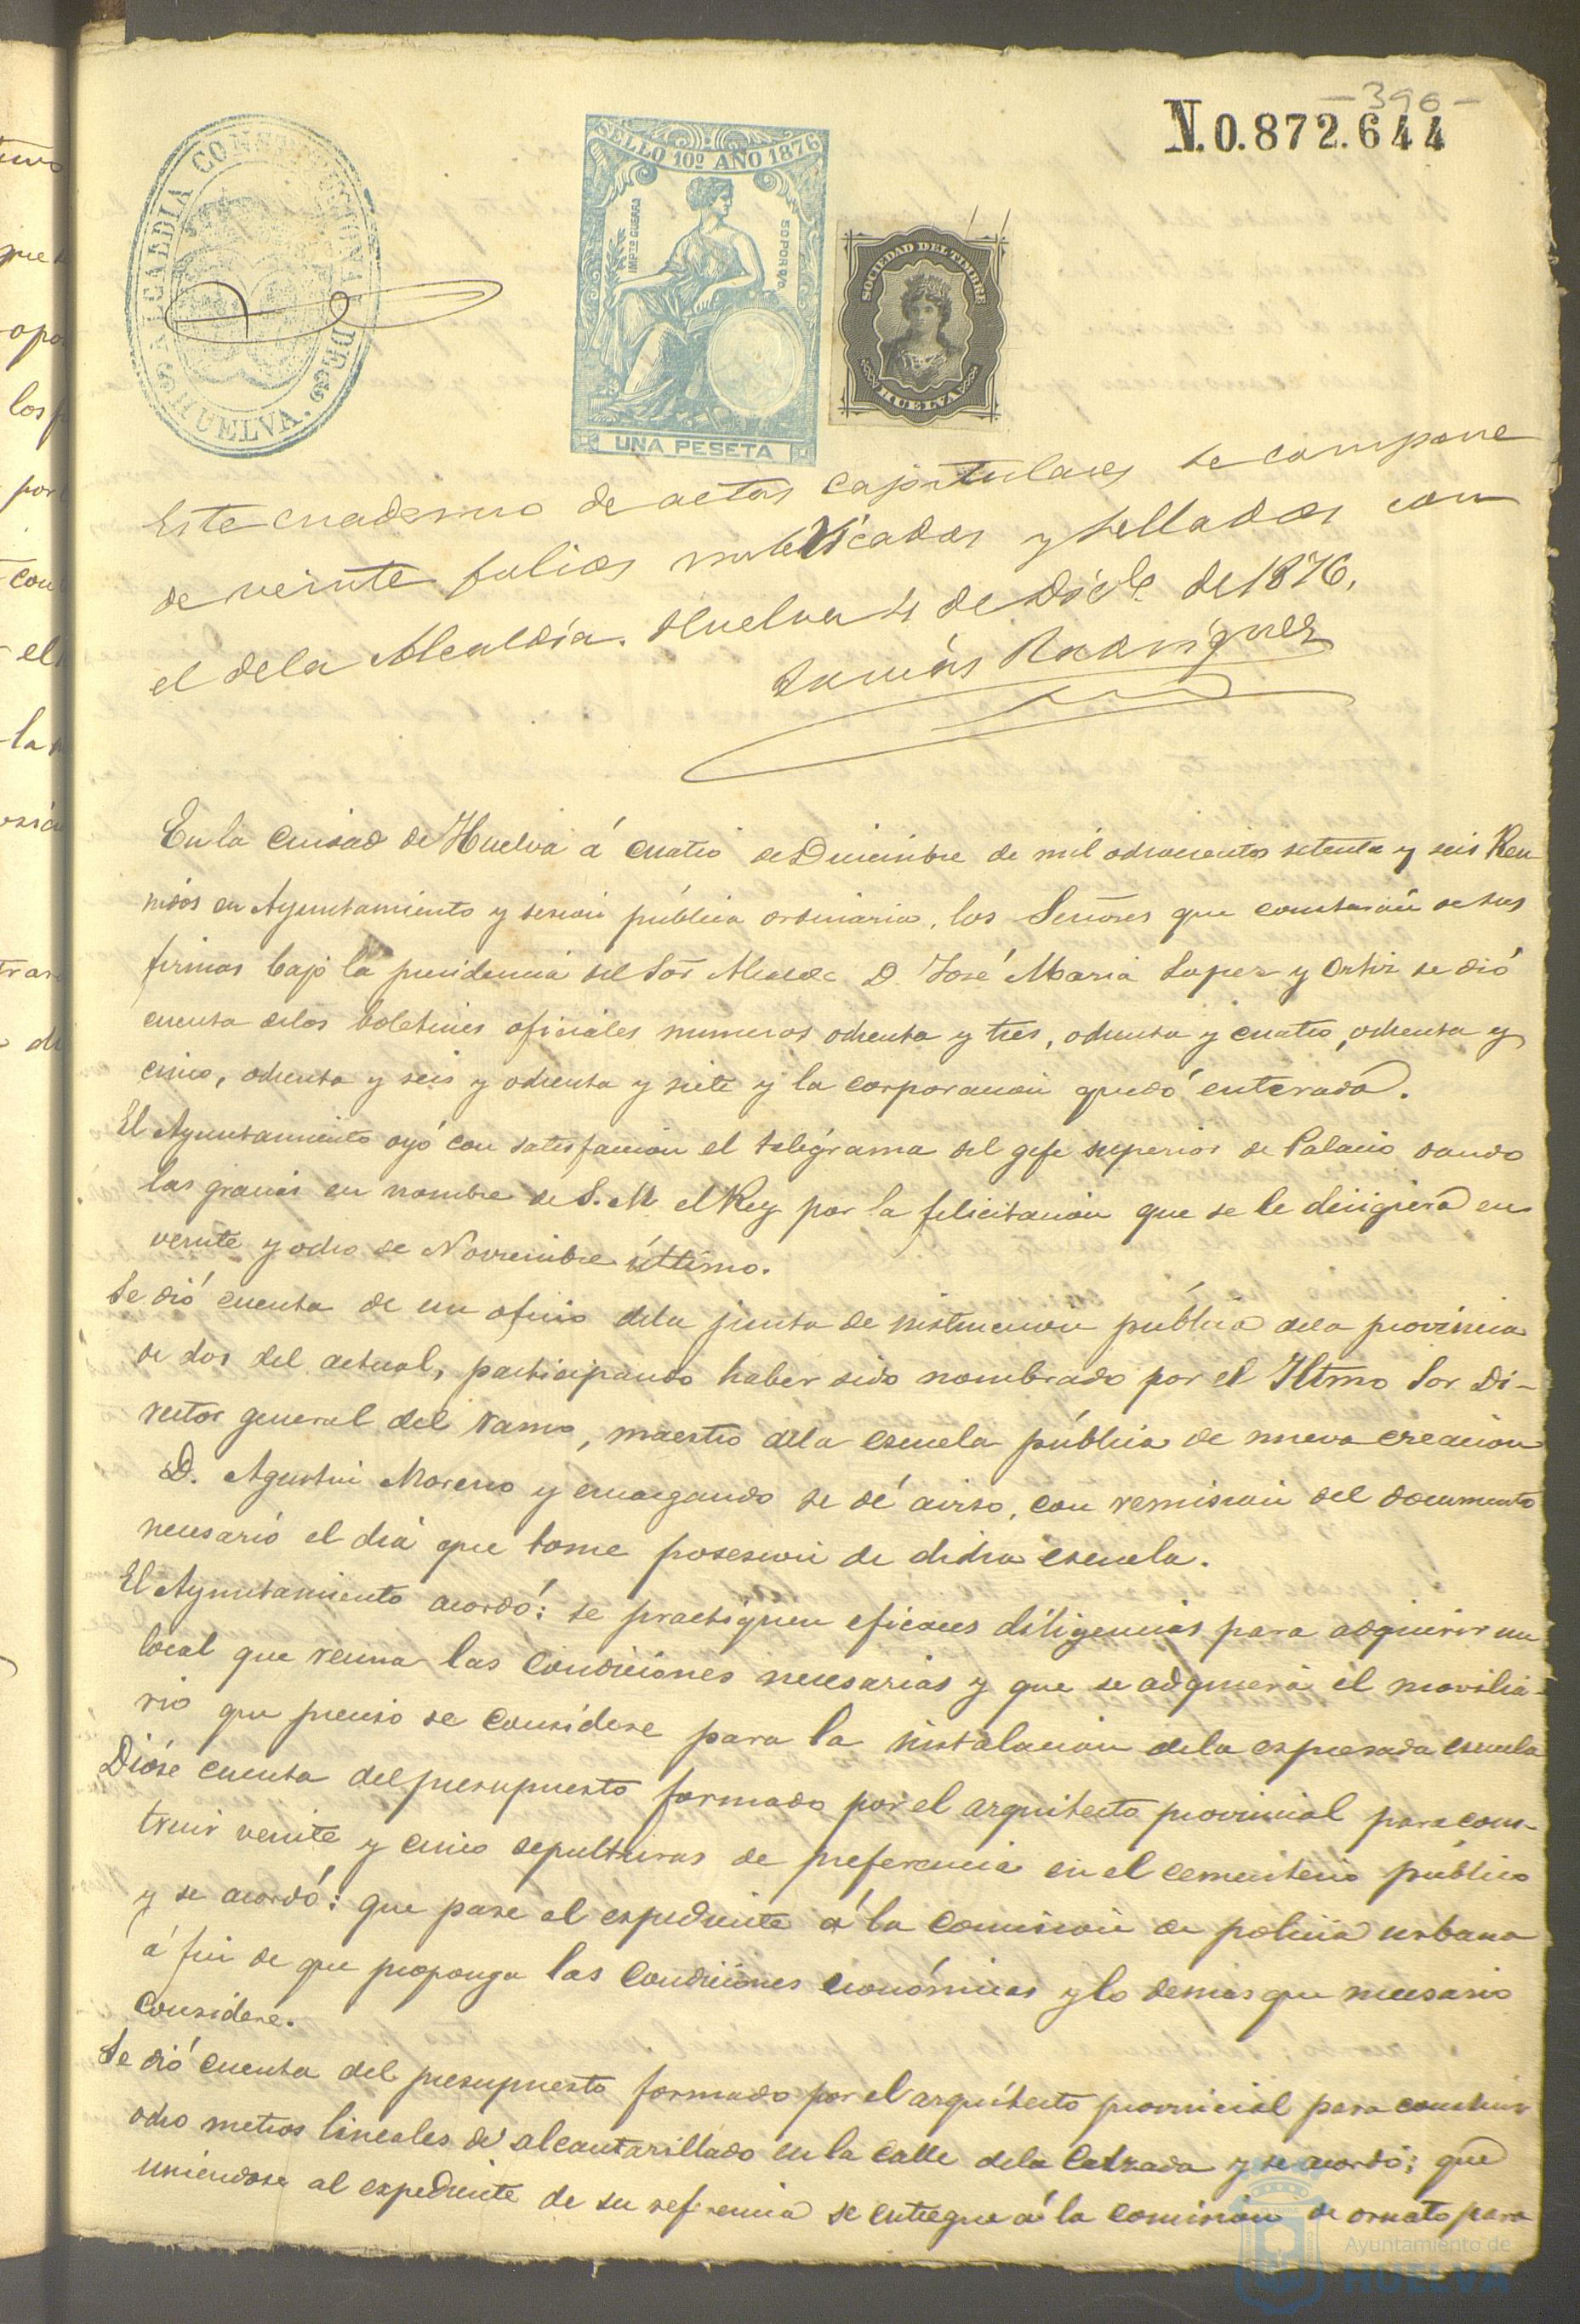 -396-
N.0.872.644
ALCALDIA CONSTITUCIONAL DE HUELVA.
SELLO 10º AÑO 1876
IMPTO GUERRA
50 POR %
UNA PESETA
SOCIEDAD DEL TIMBRE
HUELVA
Este cuaderno de actas capitulares se compone
de veinte folios rubricados y sellados con
el dela Alcaldía. Huelva 4 de Dicbe. de 1876.
Tomás Rodríguez
En la Ciudad de Huelva á cuatro de Diciembre de mil ochocientos setenta y seis Reu
nidos en Ayuntamiento y sesion pública ordinaria, los Señores que constarán de sus
firmas bajo la presidencia del Sor Alcalde D. José Maria Lopez y Ortiz se dió
cuenta delos boletines oficiales numeros ochenta y tres, ochenta y cuatro, ochenta y
cinco, ochenta y seis y ochenta y siete y la corporacion quedó enterada.
El Ayuntamiento oyó con satisfaccion el telégrama del gefe superior de Palacio dando
las gracias en nombre de S. M. el Rey por la felicitacion que se le dirigiera en
veinte y ocho de Noviembre último.
Se dió cuenta de un oficio dela junta de instruccion pública dela provincia
de dos del actual, participando haber sido nombrado por el Iltmo Sor Di-
rector general del ramo, maestro dela escuela pública de nueva creacion
D. Agustin Moreno y encargando se dé aviso, con remision del documento
necesario el dia que tome posesion de dicha escuela.
El Ayuntamiento acordó: se practiquen eficaces diligencias para adquirir un
local que reuna las condiciones necesarias y que se adquiera el movilia-
rio que preciso se considere para la instalacion dela espresada escuela
Dióse cuenta del presupuesto formado por el arquitecto provincial para cons-
truir veinte y cinco sepulturas de preferencia en el cementerio público
y se acordó: que pase el espediente á la comision de policia urbana
á fin de que proponga las condiciones económicas y lo demas que necesario
considere.
Se dió cuenta del presupuesto formado por el arquitecto provincial para construir
ocho metros lineales de alcantarillado en la calle dela Calzada y se acordó: que
uniendose al espediente de su referencia se entregue á la comision de ornato para
Ayuntamiento de
HUELVA